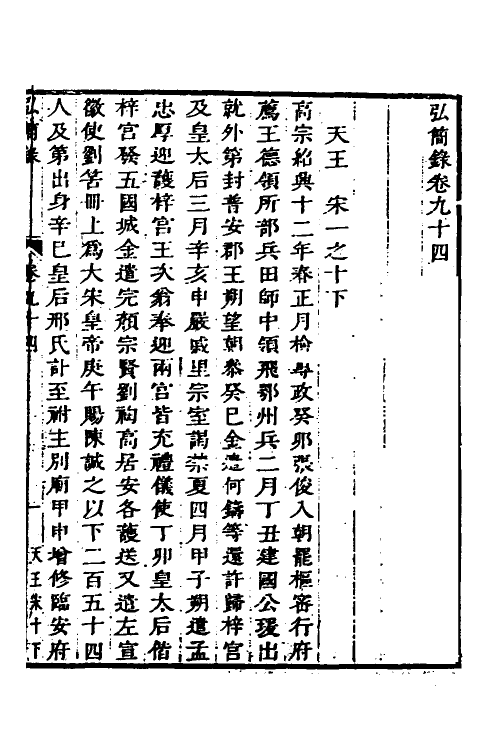 弘簡錄卷九十四
天王　宋一之十下
高宗紹興十二年春正月檜專政癸卯張俊入朝罷樞密行府
薦王德領所部兵田師中領飛鄂州兵二月丁丑建國公瑗出
就外第封普安郡王朔望朝參癸巳金遣何鑄等還許歸梓宮
及皇太后三月辛亥申嚴戚里宗室謁禁夏四月甲子朔遣孟
忠厚迎護梓宮王次翁奉迎兩宮皆充禮儀使丁卯皇太后偕
梓宮發五國城金遣完顏宗賢劉祹高居安各護送又遣左宣
徽使劉筈冊上爲大宋皇帝庚午賜陳誠之以下二百五十四
人及第出身辛巳皇后邢氏訃至祔主別廟甲申增修臨安府
弘簡錄　卷九十四　一　天王宋十下